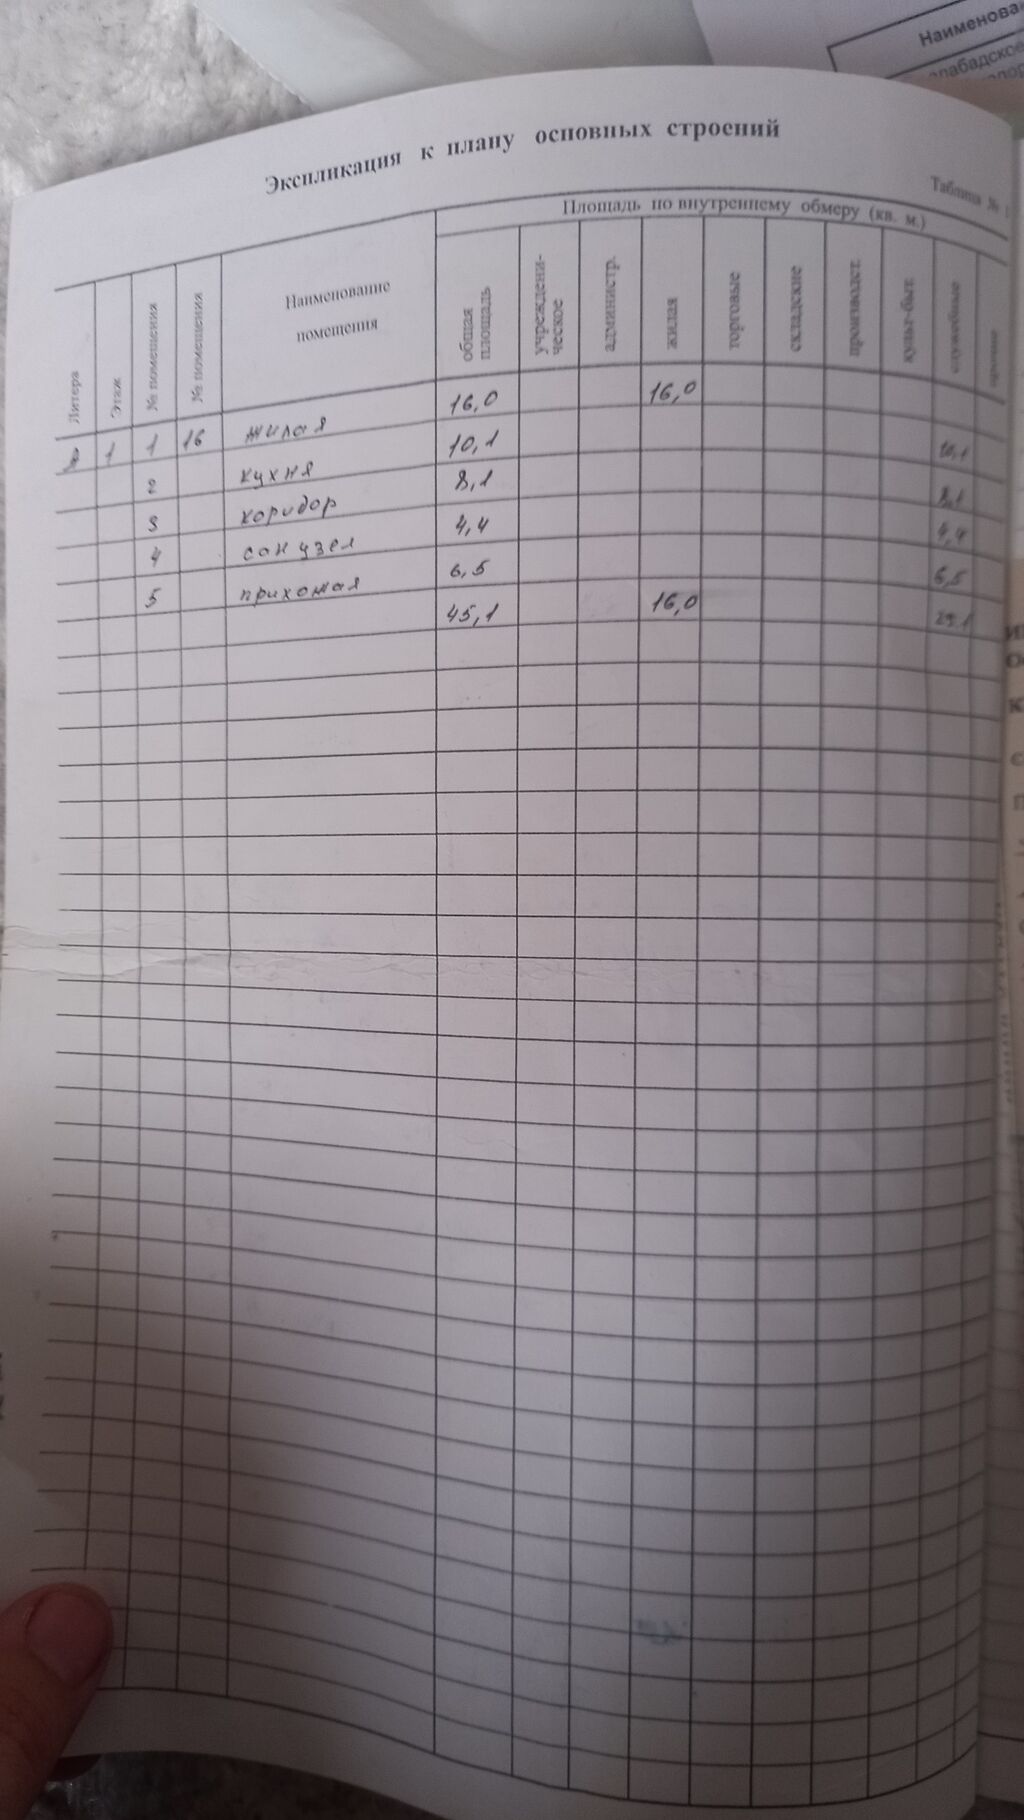 Наименова
лабадское
Экспликация к плану основных строений
Таблица № 1
Площадь по внутреннему обмеру (кв. м.)
Литера
Этаж
№ помещения
№ помещения
Наименование помещения
общая площадь
учреждени-ческое
администр.
жилая
торговые
складские
производст.
культ-быт.
служебные
прочие
1 1 16 жилая 16,0 16,0
2 кухня 10,1 10,1
3 коридор 8,1 8,1
4 сан узел 4,4 4,4
5 прихожая 6,5 6,5
45,1 16,0 29.1